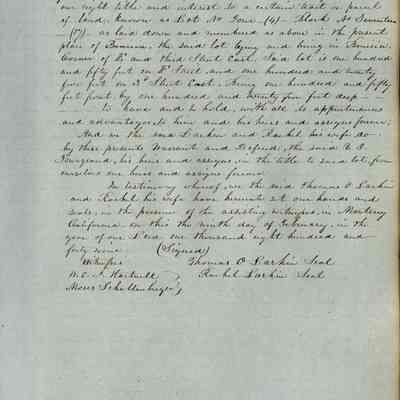 our right title and interest to a certain tract or parcel
of land, known as Lot No four (4) Block No Seventeen
(17) as laid down and numbered as above in the present
place of Benicia, the said lot lying and being in Benicia.
Corner of D and third Street East. Said lot is one hundred
and fifty feet on D Street and one hundred and twenty
five feet on 3d Street East. Being one hundred and fifty
feet front by one hundred and twenty five feet deep
To have and to hold, with all its appurtenances
and advantages to him and his heirs and assigns forever,
And we the said Larkin and Rachel his wife do
by these presents Warrant and Defend, the said
his heirs and assigns, in the title to said lot from
ourselves our heirs and assigns forever
In testimony whereof, we the said Thomas O Larkin
and Rachel his wife have hereunto set our hands and
seals, in the presence of the attesting witnesses, in Monterey
California on this the ninth day of February, in the
year of our Lord one thousand eight hundred and
forty nine (Signed)
Witness Thomas O Larkin Seal
W. E. P. Hartnell } Rachel Larkin Seal
Moses Schallenberger }